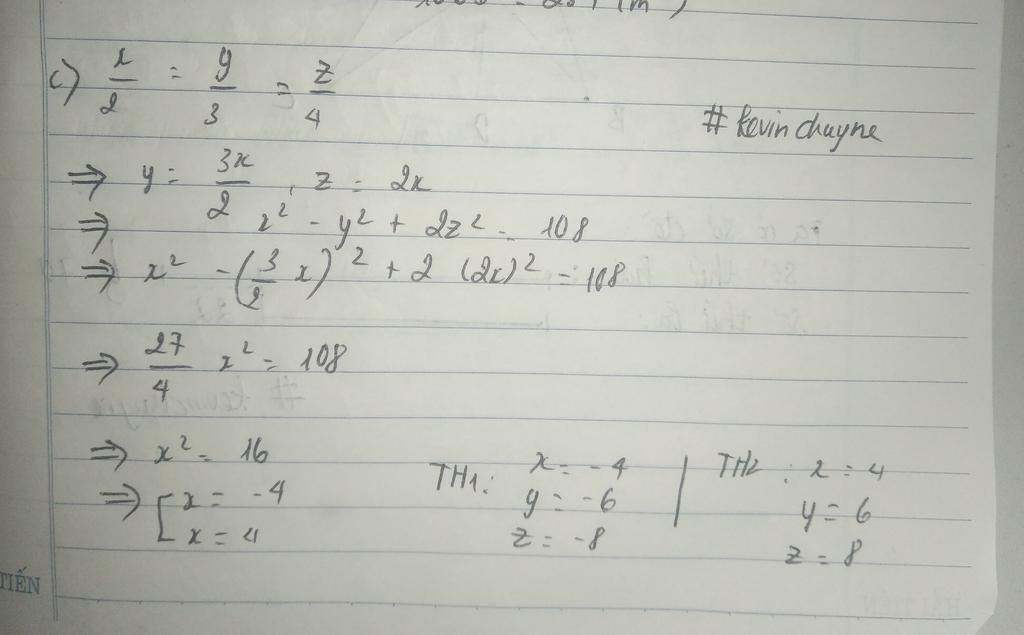 c) x/2 = y/3 = z/4
# kevin chayne
⇒ y = 3x/2 , z = 2x
⇒ x² - y² + 2z² = 108
⇒ x² - (3/2 x)² + 2 (2x)² = 108
⇒ 27/4 x² = 108
⇒ x² = 16
⇒ [ x = -4
x = 4
TH1: x = -4
y = -6
z = -8
TH2: x = 4
y = 6
z = 8
TIẾN